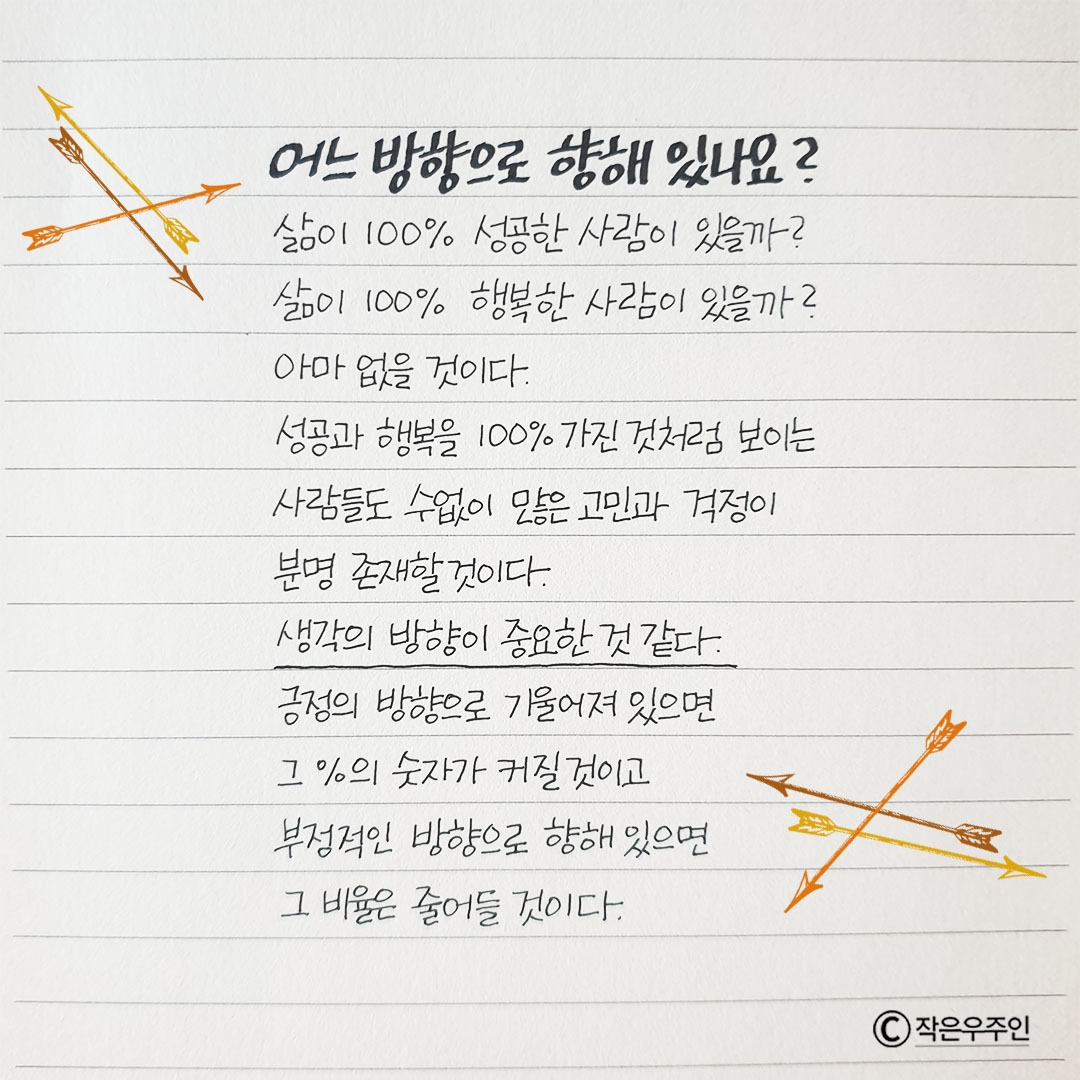 어느 방향으로 향해 있나요?
삶이 100% 성공한 사람이 있을까?
삶이 100% 행복한 사람이 있을까?
아마 없을 것이다.
성공과 행복을 100% 가진 것처럼 보이는
사람들도 수없이 많은 고민과 걱정이
분명 존재할것이다.
생각의 방향이 중요한 것 같다.
긍정의 방향으로 기울어져 있으면
그 %의 숫자가 커질것이고
부정적인 방향으로 향해 있으면
그 비율은 줄어들 것이다.
ⓒ작은우주인